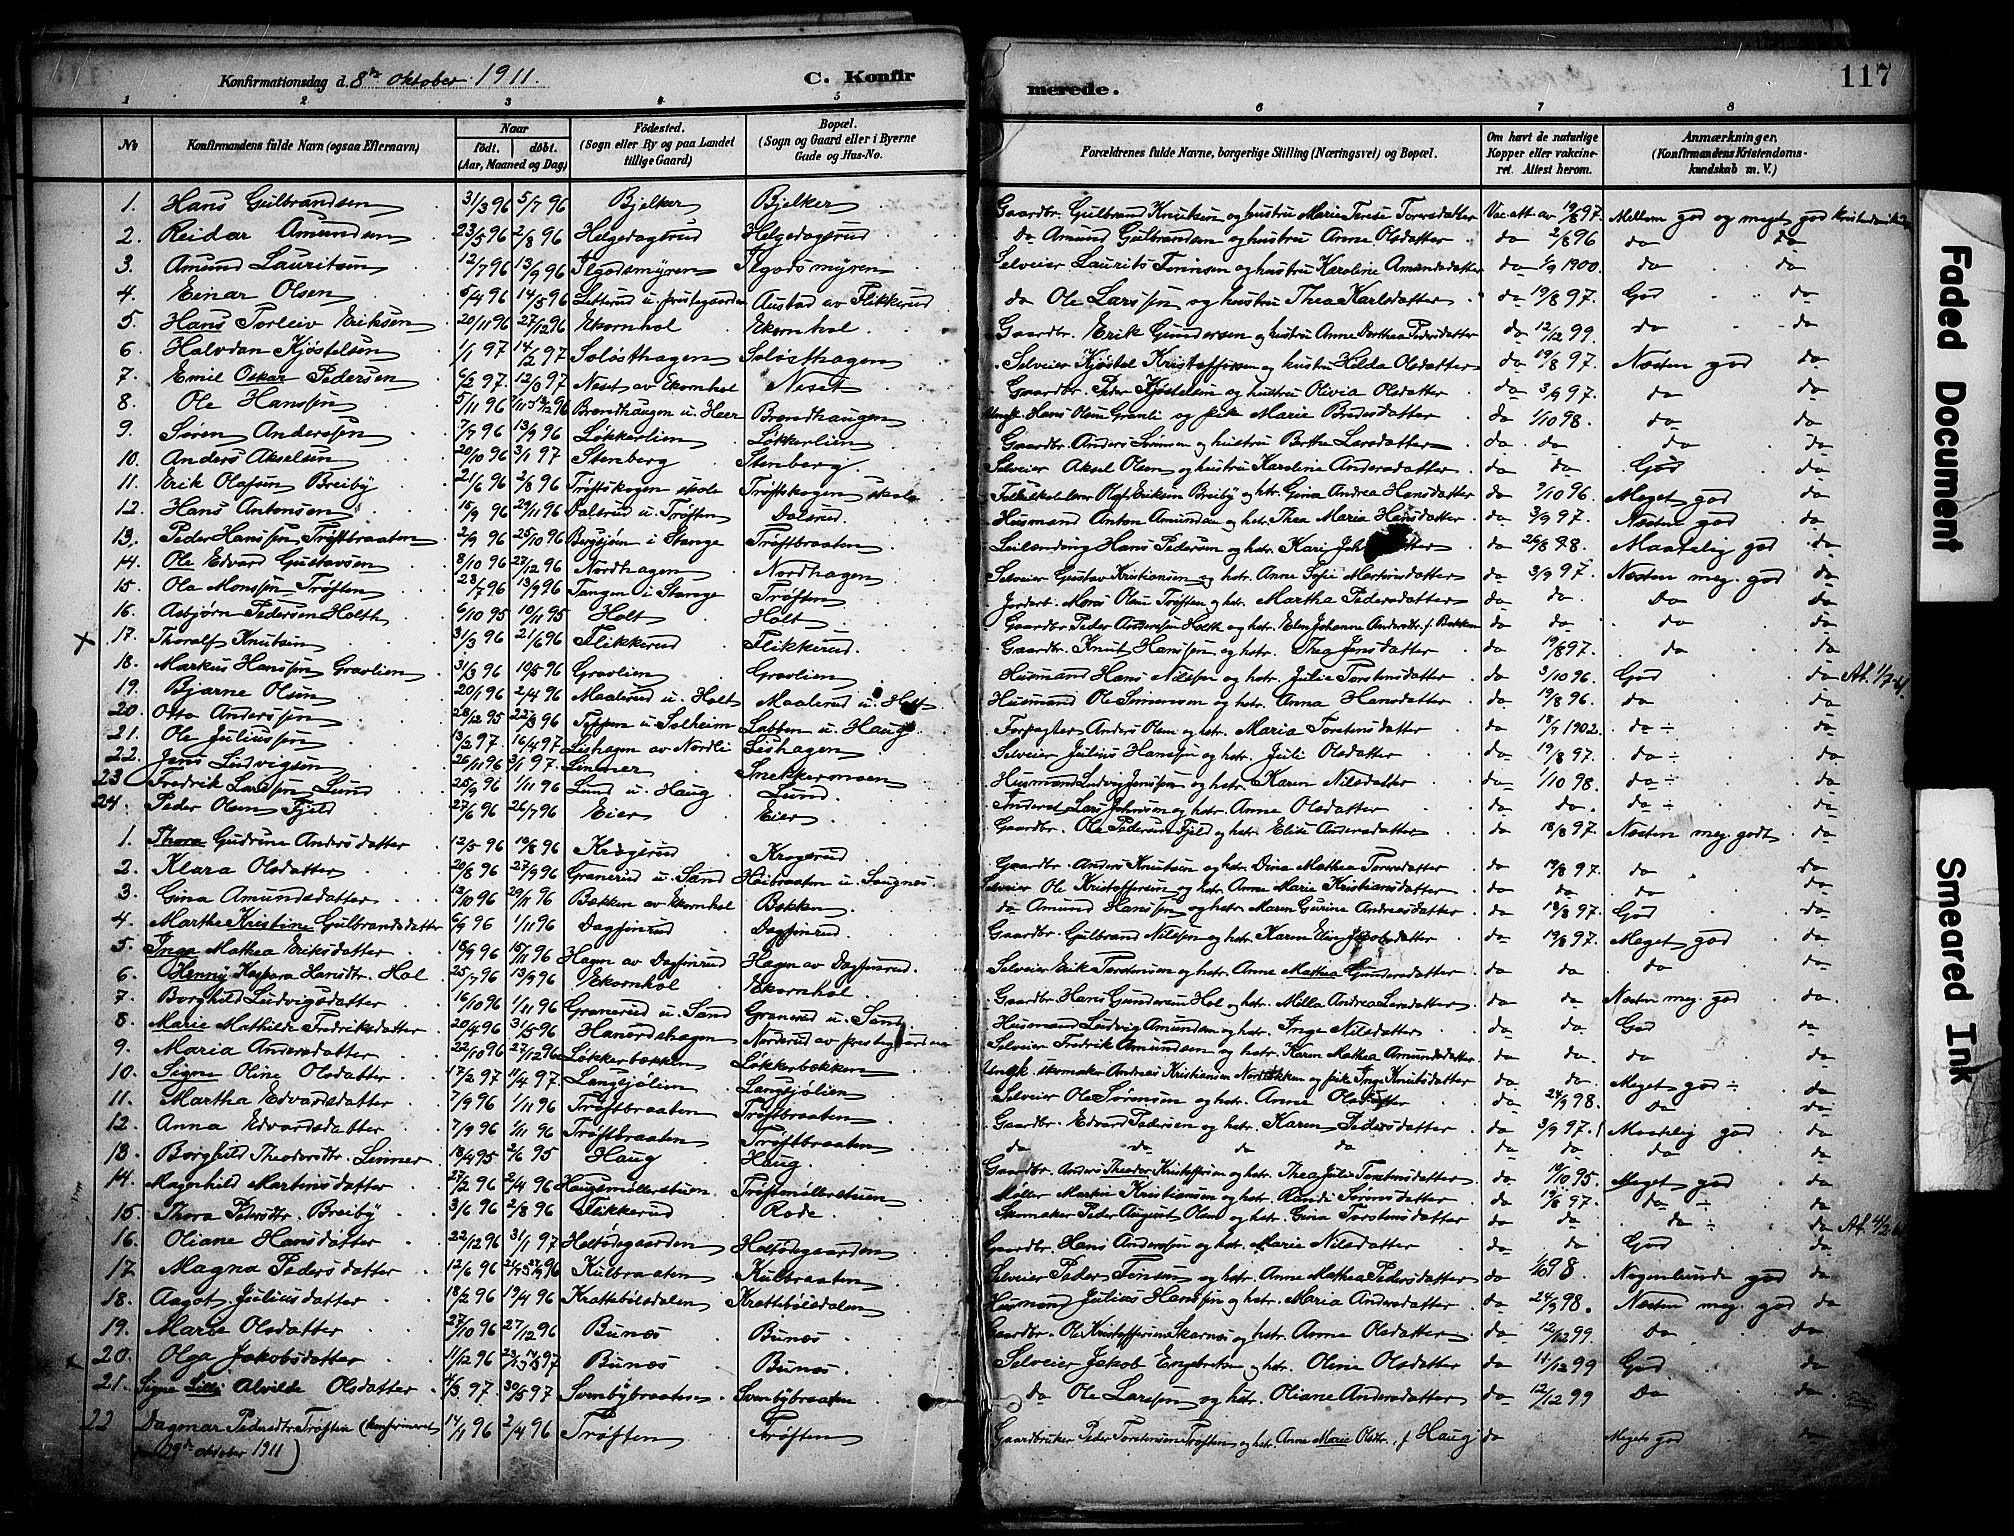 Konfirmationsdag d. 8de oktober 1911. C. Konfir
merede. 117
1 2 3 4 5 6 7 8
No Konfirmandens fulde Navn (ogsaa Efternavn) Naar født. døbt. (Aar, Maaned og Dag) Fødested. (Sogn eller By og paa Landet tillige Gaard) Bopæl. (Sogn og Gaard eller i Byerne Gade og Hus-No. Forældrenes fulde Navne, borgerlige Stilling (Næringsvei) og Bopæl. Om havt de naturlige Kopper eller vakcineret. Attest herom. Anmærkninger, (Konfirmandens Kristendomskundskab m. V.)
1. Hans Gulbrandsen 31/3 96 5/7 96 Bjelker Bjelker Gaardbr. Gulbrand Knutsen og hustru Marie Terese Toresdatter Vac. att. av 19/8 97. Mellem god og meget god
2. Reidar Amundsen 23/5 96 2/8 96 Helgedagsrud Helgedagsrud do Amund Gulbrandsen og hustru Anne Olsdatter do 2/8 96 do do
3. Amund Lauritsen 12/7 96 13/9 96 Flgodsmyren Flgodsmyren Selveier Laurits Torinsen og hustru Karoline Amundsdatter do 1/9 1900. do do
4. Einar Olsen 5/4 96 14/5 96 Setterud u. prestegaarden Austad av Flikkerud do Ole Larssen og hustru Thea Karlsdatter do 19/8 97. God do
5. Hans Torleiv Eriksen 20/11 96 27/12 96 Ekornhol Ekornhol Gaardbr. Erik Gundersen og hustru Anne Dorthea Pedersdatter do 12/12 99. do do
6. Halvdan Kjøstelsen 1/1 97 14/2 97 Soløsthagen Soløsthagen Selveier Kjøstel Kristoffersen og hustru Hilda Olsdatter do 19/8 97. Næsten god do
7. Emil Oskar Pedersen 6/2 97 12/3 97 Neset av Ekornhol Neset Gaardbr. Peder Kjøstelsen og hustru Olivia Olsdatter do 3/9 97. do do
8. Ole Hanssen 5/11 96 Brendhaugen u. Heer Brendhaugen Ungk. Hans Olsen Grønli og pike Marie Bredesdatter do 1/10 98. do do
9. Søren Anderssen 7/7 96 13/9 96 Løkkerlien Løkkerlien Gaardbr. Anders Sørensen og hustru Berthe Larsdatter do do do do
10. Anders Akselsen 20/10 96 3/1 97 Stenberg Stenberg Selveier Aksel Olsen og hustru Karoline Andersdatter do do God do
11. Erik Olafsen Breiby 21/6 96 2/8 96 Trøftskogen skole Trøftskogen skole Folkeskolelærer Olaf Eriksen Breiby og hstr. Gina Andrea Hansdatter do 2/10 96. Meget god do
12. Hans Antonsen 15/9 96 29/11 96 Dalsrud u. Trøften Dalsrud. Husmand Anton Amundsen og hstr. Thea Maria Hansdatter do 3/9 97. Næsten god do
13. Peder Hanssen Trøftbraaten 2/9 96 25/10 96 Bergsjøen i Stange Trøftbraaten Leilænding Hans Pedersen og hstr. Kari do 26/8 98. Maatelig god do
14. Ole Edvard Gustavsen 8/10 96 27/12 96 Nordhagen Nordhagen Selveier Gustav Kristiansen og hstr. Anne Sofie Martinsdatter do 3/9 97. Næsten meg. god do
15. Ola Monssen Trøften 23/7 96 13/9 96 Tangen i Stange Trøften Jordarb. Mons Olsen Trøften og hstr. Martha Pedersdatter do do. Do do
16. Asbjørn Pedersen Holth 6/10 95 10/11 95 Holt Holt Gaardbr. Peder Andersen Holth og hstr. Elen Johanne Andersdtr. f. Bakken do do. do do
X 17. Thoralf Knutsen 31/3 96 21/6 96 Flikkerud Flikkerud. Gaardbr. Knut Hanssen og hstr. Thea Jensdatter do 19/8 97. do do
18. Markus Hanssen Gravlien 31/3 96 10/5 96 Gravlien Gravlien Husmand Hans Nilssen og hstr. Julie Torstensdatter do 3/10 96. God do
19. Bjarne Olsen 20/1 96 2/4 96 Maalerud u. Holt Maalerud u. Holt Husmand Ole Simensen og hstr. Anna Hansdatter do 19/8 96. do do
20. Otto Anderssen 28/12 95 22/3 96 Teppen u. Solheim Labben u. Haug Forpagter Anders Olsen og hstr. Maria Torstensdatter do 18/9 1902. do ÷ do
21. Ole Juliussen 13/2 97 16/4 97 Lishagen av Nordli Lishagen Selveier Julius Hanssen og hstr. Juli Olsdatter do 19/8 97. do ÷ do
22. Jens Ludvigsen 26/11 96 3/1 97. Linner Snekkermoen Husmand Ludvig Jenssen og hstr. Karen Nilsdatter do 1/10 98. do ÷ do
23 Fredrik Larssen Lund 25/9 96 1/11 96 Lund u. Haug Lund. Inderst Lars Johnsen og hstr. Anne Olsdatter do do. do ÷ do
24. Peder Olsen Fjeld 27/6 96 26/7 96 Eier Eier Gaardbr. Ole Pedersen Fjeld og hstr. Elise Andersdatter do 18/8 97. Næsten meg. godt do
1. Thora Gudrun Andersdatter 12/5 96 19/8 96 Krogerud Krogerud Gaardbr. Anders Knutsen og hstr. Dina Mathea Toresdatter do 19/8 97. do do
2. Klara Olsdatter 20/8 96 27/9 96 Granerud u. Sand Høibraaten u. Sougnes. Selveier Ole Kristoffersen og hstr. Anne Marie Kristiansdatter do do do do
3. Gina Amundsdatter 13/10 96 29/11 96 Bækken av Ekornhol Bækken do Amund Hanssen og hstr. Maren Gurine Andreasdatter do 18/8 97. God do
4. Marthe Kristine Gulbrandsdatter 6/9 96 1/11 96 Dagfinrud Dagfinrud Gaardbr. Gulbrand Nilssen og hstr. Karen Elise Jacobsdatter do 19/8 97. Meget god do
5. Inga Mathea Eriksdatter 18/9 96 15/11 96 Hagen av Dagfinrud Hagen av Dagfinrud. Selveier Erik Torstensen og hstr. Anne Mathea Gundersdatter do do do do
6. Henny Kaspara Hansdtr. Hol 25/7 96 13/9 96 Ekornhol Ekornhol Gaardbr Hans Gundersen Hol og hstr. Mella Andrea Larsdatter do do Næsten meg. god do.
7. Borghild Ludvigsdatter 16/10 96 1/11 96 Granerud u. Sand Granerud u. Sand Husmand Ludvig Amundsen og hstr. Inge Nilsdatter do do God do
8. Marie Mathilde Fredriksdatter 20/4 96 31/5 96 Hanordshagen Norderud av prestegaarden Selveier Fredrik Amundsen og hstr. Karen Mathea Amundsdatter do do do do
9. Maria Andersdatter 22/10 96 27/12 96 Løkkerbækken Løkkerbækken Ungk. skomaker Andreas Kristiansen Nordbækken og pike Inge Knutsdatter do do Meget god ÷ do
10. Signe Oline Olsdatter 17/2 97 11/4 97. Langsjølien Langsjølien Selveier Ole Sørensen og hstr. Anne Olsdatter do 24/9 98. Do do
11. Martha Edvardsdatter 7/9 96 1/11 96 Trøftbraaten Trøftbraaten Gaardbr. Edvard Pedersen og hstr. Karen Pedersdatter do 3/9 97. Maatelig god do
12. Anna Edvardsdatter 7/9 96 1/11 96 Trøftbraaten Trøftbraaten do do do do do do do do
13. Borghild Theodorsdtr. Linner 18/4 95 2/6 95 Haug Haug. Gaardbr. Anders Theodor Kristoffersen og hstr. Thea Julie Torstensdatter do 10/10 95. Meget god do
14. Magnhild Martinsdatter 27/2 96 2/4 96 Haugsmøllerstuen Trøftmøllerstuen Møller Martin Kristiansen og hstr. Randi Sørensdatter do 19/8 97. do ÷ do
15. Thora Pedersdtr. Breiby 3/6 96 2/8 96 Flikkerud Rode. Skomaker Peder August Olsen og hstr. Gina Torstensdatter do do do ÷ do
16. Oliane Hansdatter 22/12 96 31/1 97 Holtødegaarden Holtødegaarden Gaardbr. Hans Anderssen og hstr. Marie Nilsdatter do do God do
17. Magna Pedersdatter 12/6 96 Kulbraaten Kulbraaten Selveier Peder Tønsen og hstr. Anne Mathea Pedersdatter do 1/10 98. Nogenlunde god do
18. Aagot Juliusdatter 18/2 96 19/4 96 Krattebølsdalen Krattebølsdalen Husmand Julius Hanssen og hstr. Maria Andersdatter do 24/9 98. Næsten meg. god do
19. Marie Olsdatter 27/10 96 27/12 96 Bunæs Bunæs. Gaardbr. Ole Kristoffersen Skarnes og hstr. Anne Olsdatter do 12/12 99. Do Do
20. Olga Jakobsdatter 11/12 96 Bunæs Bunæs. Selveier Jakob Engebretsen og hstr. Oline Olsdatter do 11/12 99 God do
21. Signe Lilli Alvilde Olsdatter 4/3 97 30/5 97 Svenbybraaten Svenbybraaten do Ole Larssen og hstr. Oliane Andersdatter do 12/12 99 Do do
22 Dagmar Pedersdtr Trøften (konfirmeret 14/1 96 2/4 96 Trøften Trøften Gaardbruker Peder Torstensen Trøften og hstr. Anne Marie Olsdtr. f. Haug do Meget god do
29de oktober 1911)
Faded Document
Smeared Ink